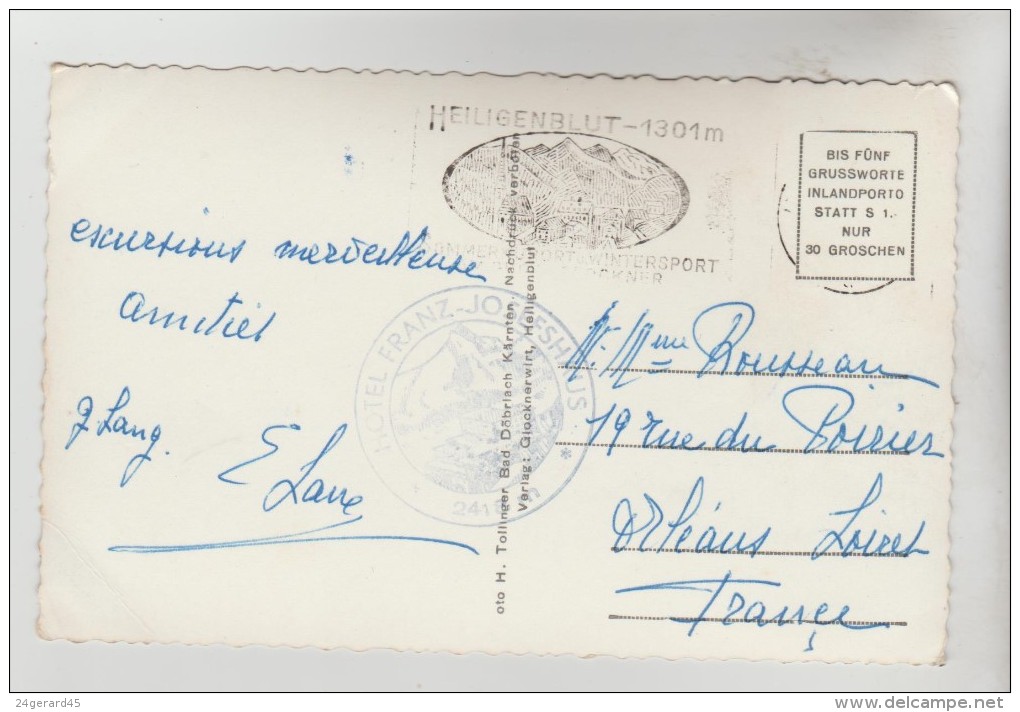 HEILIGENBLUT-1301m
SOMMER SPORT WINTERSPORT
BIS FÜNF
GRUSSWORTE
INLANDPORTO
STATT S 1.-
NUR
30 GROSCHEN
excursions merveilleuse
Amitiés
J Lang.
E Lang
HOTEL FRANZ-JOSEFSHAUS
oto H. Tollinger Bad Döbriach Kärnten. Nachdruck verboten
Verlag: Glocknerwirt, Heiligenblut
Mr. Mme Rousseau
19 rue du Poirier
Orléans Loiret
France
24gerard45
www.delcampe.net